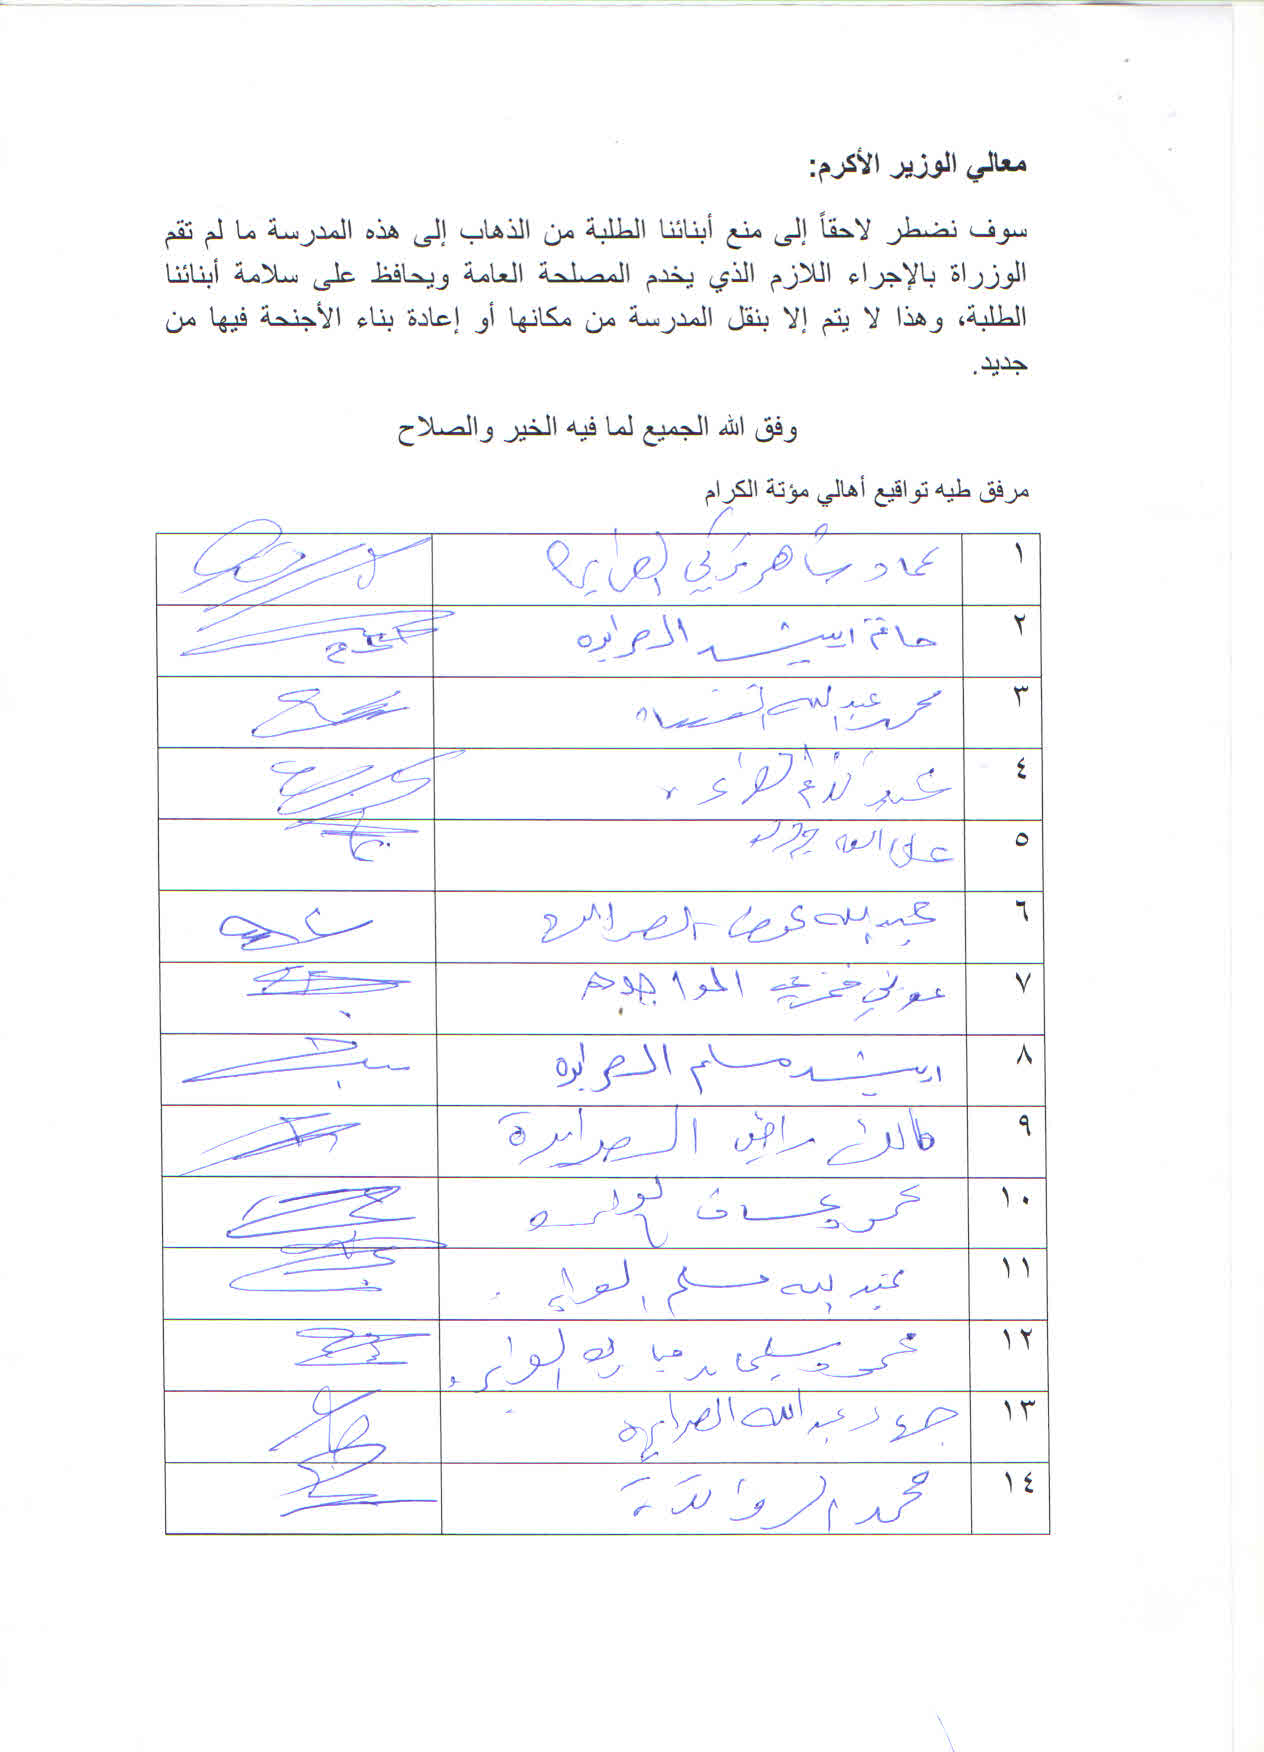 معالي الوزير الأكرم:
سوف نضطر لاحقاً إلى منع أبنائنا الطلبة من الذهاب إلى هذه المدرسة ما لم تقم
الوزراة بالإجراء اللازم الذي يخدم المصلحة العامة ويحافظ على سلامة أبنائنا
الطلبة، وهذا لا يتم إلا بنقل المدرسة من مكانها أو إعادة بناء الأجنحة فيها من
جديد.
وفق الله الجميع لما فيه الخير والصلاح
مرفق طيه تواقيع أهالي مؤتة الكرام
١ عماد شاهر تركي الصرايره
٢ حاتم ارشيد الصرايره
٣ محمد عبدالله
٤ عبد
٥ عطا الله
٦ عبدالله عوض الصرايره
٧ عوني فخري المواجده
٨ ارشيد مسلم الصرايره
٩ مالك راضي الصرايرة
١٠ محمود
١١ عبدالله مسلم
١٢ محمود سليمان مبارك
١٣ جهاد عبدالله الصرايره
١٤ محمد